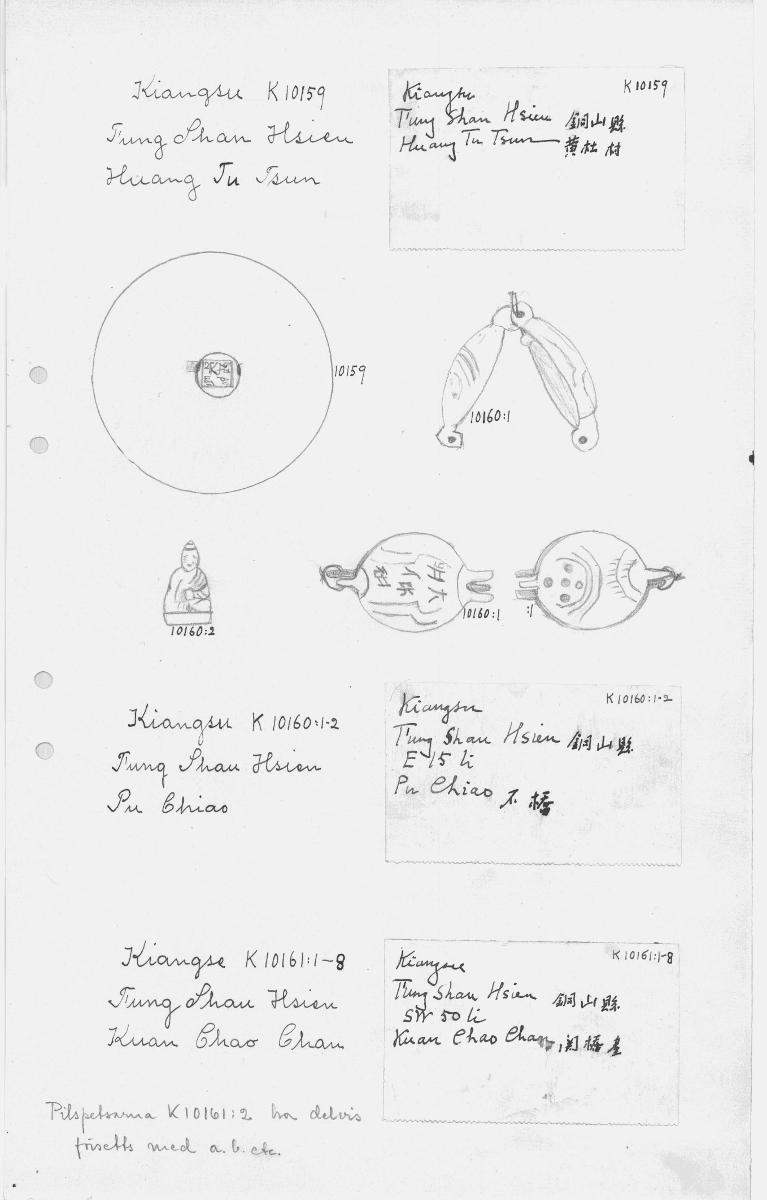 Kiangsu K10159
Tung Shan Hsien
Huang Tu Tsun
Kiangsu K10159
Tung Shan Hsien 銅山縣
Huang Tu Tsun 黄杜村
10159
10160:1
10160:2
10160:1
:1
Kiangsu K10160:1-2
Tung Shan Hsien
Pu Chiao
Kiangsu K10160:1-2
Tung Shan Hsien 銅山縣
E 15 li
Pu Chiao 不橋
Kiangse K10161:1-8
Tung Shan Hsien
Kuan Chao Chan
Kiangsu K10161:1-8
Tung Shan Hsien 銅山縣
SW 50 li
Kuan Chao Chan
Pilspetsarna K10161:2 ha delvis
försetts med a.b. etc.